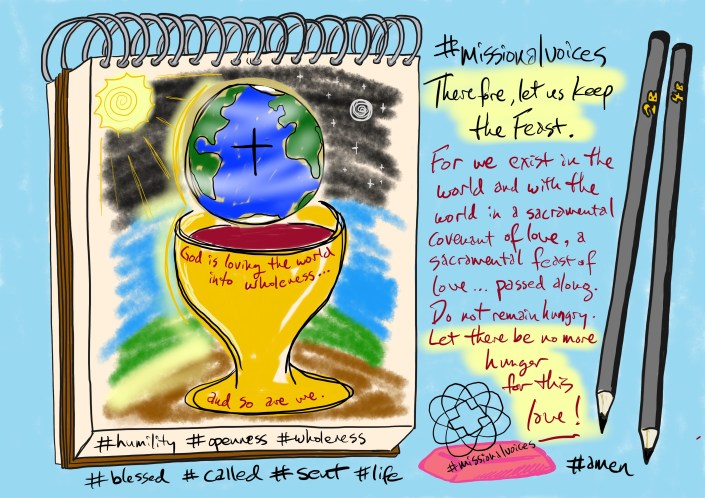 God is loving the world
into wholeness...
and so are we.
#humility #openness #wholeness
#blessed #called #sent #life
#missionalvoices
Therefore, let us keep
the Feast.
For we exist in the
world and with the
world in a sacramental
covenant of love, a
sacramental feast of
love... passed along.
Do not remain hungry.
Let there be no more
hunger
for this
love!
#missionalvoices
#amen
2B
4B